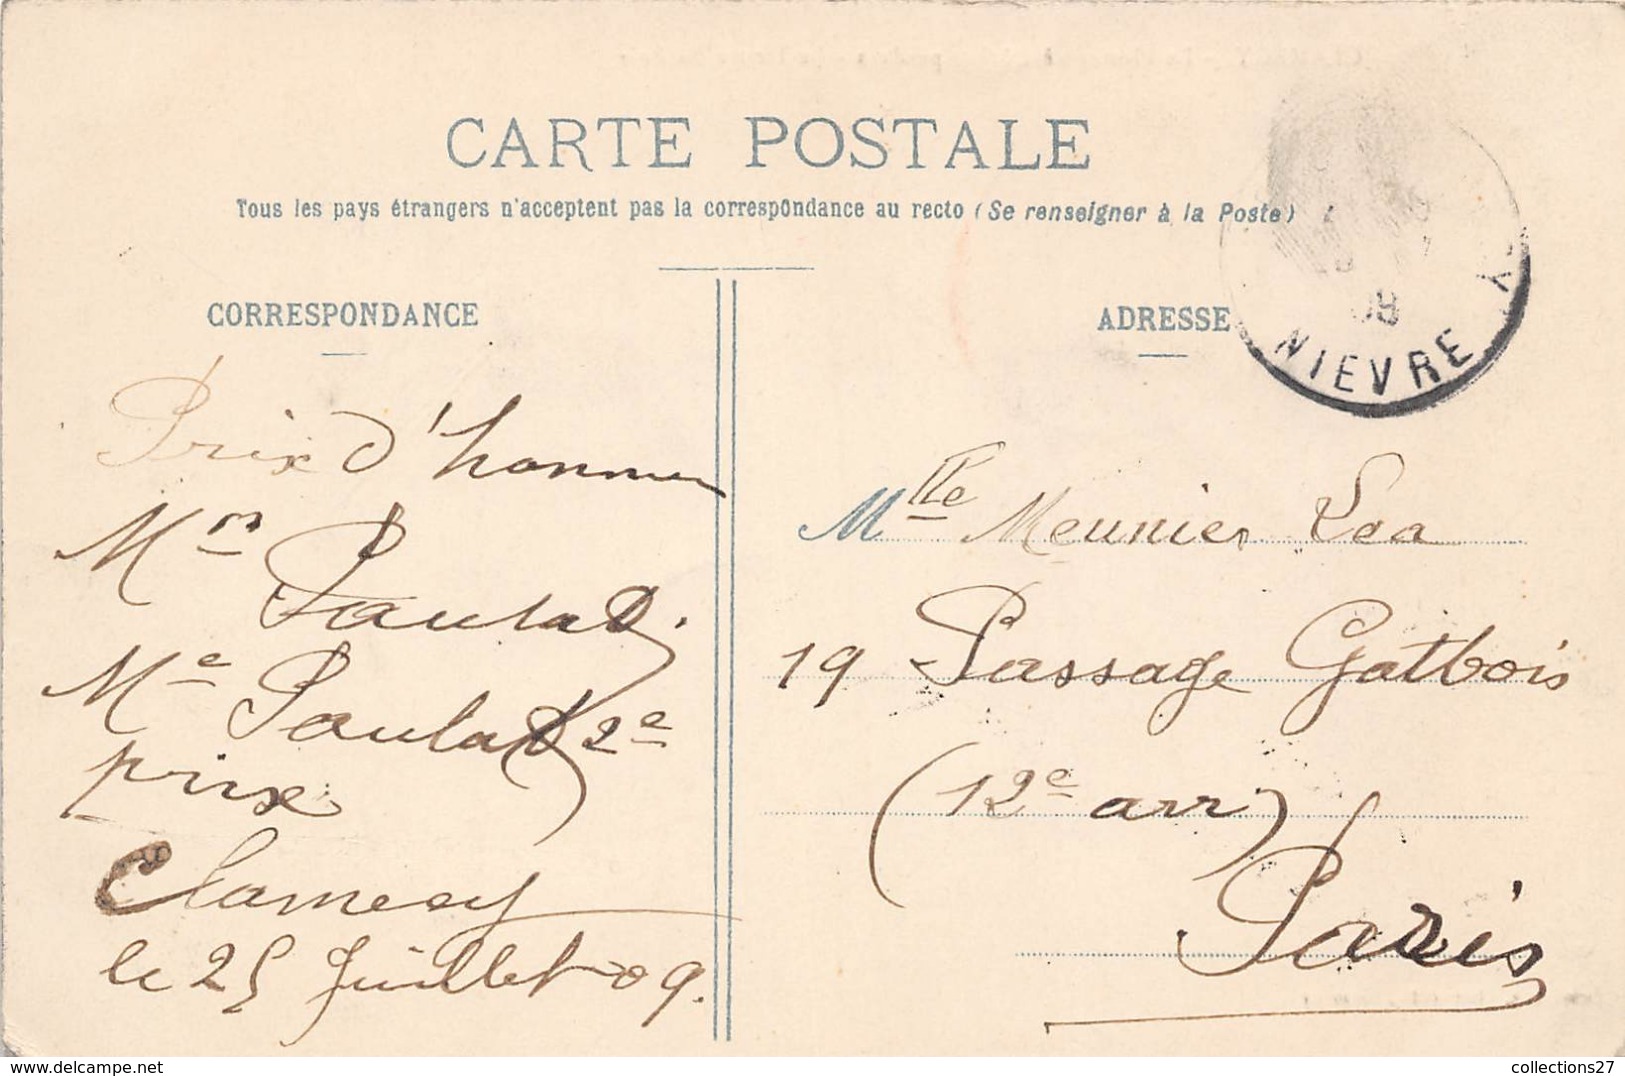 CARTE POSTALE
Tous les pays étrangers n'acceptent pas la correspondance au recto (Se renseigner à la Poste)
CORRESPONDANCE
ADRESSE
08
NIEVRE
Prix d'honneur
Mr Paulat
Me Paulat 2e
prix
Clamecy
le 25 Juillet 09.
Mlle Meunier Lea
19 Passage Gatbois
(12e arr)
Paris
collections27